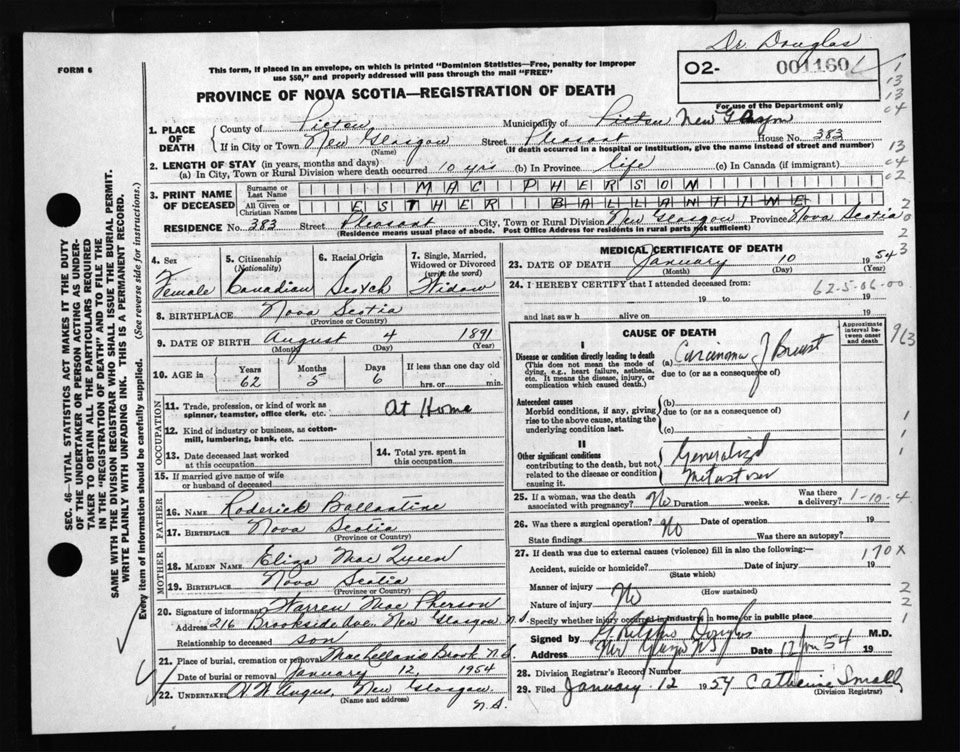 Dr. Douglas
FORM 6
This form, if placed in an envelope, on which is printed "Dominion Statistics—Free, penalty for improper
use $50," and properly addressed will pass through the mail "FREE"
O2- 001160
PROVINCE OF NOVA SCOTIA—REGISTRATION OF DEATH
For use of the Department only
1. PLACE OF DEATH County of Pictou Municipality of Pictou New Glasgow
If in City or Town New Glasgow Street Pleasant House No. 383
(Name) (If death occurred in a hospital or institution, give the name instead of street and number)
2. LENGTH OF STAY (in years, months and days)
(a) In City, Town or Rural Division where death occurred 10 yrs (b) In Province life (c) In Canada (if immigrant)
3. PRINT NAME OF DECEASED Surname or Last Name MAC PHERSON
All Given or Christian Names ESTHER BALLANTINE
RESIDENCE No. 383 Street Pleasant City, Town or Rural Division New Glasgow Province Nova Scotia
(Residence means usual place of abode. Post Office Address for residents in rural parts not sufficient)
4. Sex Female
5. Citizenship (Nationality) Canadian
6. Racial Origin Scotch
7. Single, Married, Widowed or Divorced (write the word) Widow
8. BIRTHPLACE Nova Scotia
(Province or Country)
9. DATE OF BIRTH August 4 1891
(Month) (Day) (Year)
10. AGE in Years 62 Months 5 Days 6 If less than one day old hrs. or min.
OCCUPATION
11. Trade, profession, or kind of work as spinner, teamster, office clerk, etc. At Home
12. Kind of industry or business, as cotton-mill, lumbering, bank, etc.
13. Date deceased last worked at this occupation
14. Total yrs. spent in this occupation
15. If married give name of wife or husband of deceased
FATHER
16. NAME Roderick Ballantine
17. BIRTHPLACE Nova Scotia
(Province or Country)
MOTHER
18. MAIDEN NAME Eliza Mac Queen
19. BIRTHPLACE Nova Scotia
(Province or Country)
20. Signature of informant Warren Mac Pherson
Address 216 Brookside Ave. New Glasgow N.S.
Relationship to deceased son
21. Place of burial, cremation or removal MacLellans Brook N.S.
Date of burial or removal January 12, 1954
22. UNDERTAKER Angus, New Glasgow N.S.
(Name and address)
MEDICAL CERTIFICATE OF DEATH
23. DATE OF DEATH January 10 1954
(Month) (Day) (Year)
24. I HEREBY CERTIFY that I attended deceased from:
62-5-06-00
19 to 19
and last saw h alive on 19
CAUSE OF DEATH
Approximate interval between onset and death
I
Disease or condition directly leading to death
(This does not mean the mode of dying, e.g., heart failure, asthenia, etc. It means the disease, injury, or complication which caused death.)
(a) Carcinoma of Breast
due to (or as a consequence of)
Antecedent causes
Morbid conditions, if any, giving rise to the above cause, stating the underlying condition last.
(b)
due to (or as a consequence of)
(c)
II
Other significant conditions contributing to the death, but not related to the disease or condition causing it.
Generalized
25. If a woman, was the death associated with pregnancy? No Duration weeks. Was there a delivery? 1-10-4
26. Was there a surgical operation? No Date of operation 19
State findings Was there an autopsy?
27. If death was due to external causes (violence) fill in also the following:—
170X
Accident, suicide or homicide? Date of injury 19
(State which)
Manner of injury No
(How sustained)
Nature of injury
Specify whether injury occurred in industry in home, or in public place
Signed by Douglas M.D.
Address New Glasgow NS Date 12 Jan 1954
28. Division Registrar's Record Number
29. Filed January 12 1954 Catherine Small
(Division Registrar)
SEC. 46—VITAL STATISTICS ACT MAKES IT THE DUTY
OF THE UNDERTAKER OR PERSON ACTING AS UNDER-
TAKER TO OBTAIN ALL THE PARTICULARS REQUIRED
IN THE "REGISTRATION OF DEATH" AND TO FILE THE
SAME WITH THE DIVISION REGISTRAR WHO SHALL ISSUE THE BURIAL PERMIT.
WRITE PLAINLY WITH UNFADING INK. THIS IS A PERMANENT RECORD.
Every item of information should be carefully supplied. (See reverse side for instructions.)